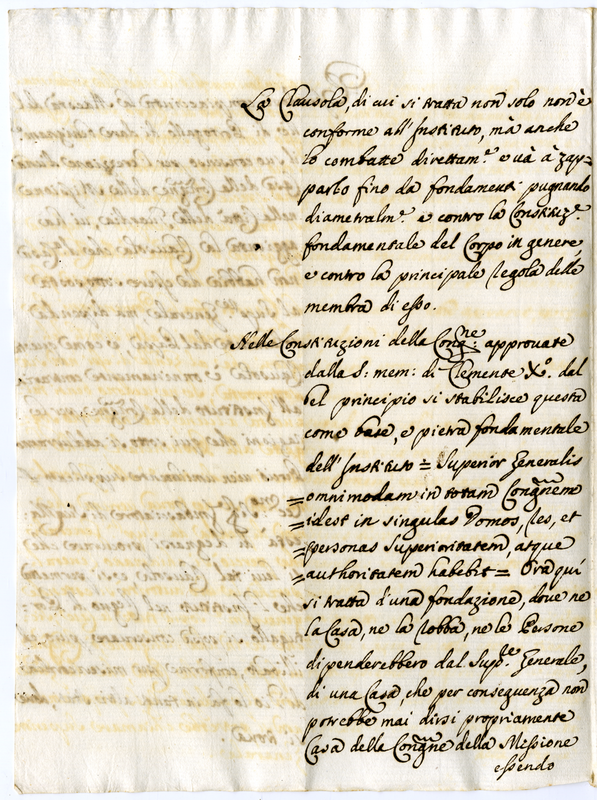 La Clausola, di cui si tratta non solo non è
conforme all'Instituto, mà anche
lo combatte direttam.e e và à zap=
parlo fino da fondamenti pugnando
diametralm.e e contro la Constituz.e
fondamentale del Corpo in genere,
e contro la principale regola delle
membra di esso.
Nelle Constituzioni della Cong.ne approvate
dalla S: mem: di Clemente X.o dal
bel principio si stabilisce questa
come base, e pietra fondamentale
dell'Instituto = Superior Generalis
= omnimodam in totam Congñem
= idest in singulas Domos, res, et
= personas Superioritatem, atque
= authoritatem habebit = Ora quì
si tratta d'una fondazione, dove ne
la Casa, ne la robba, ne le Persone
dipenderebbero dal Sup.re Generale,
di una Casa, che per conseguenza non
potrebbe mai dirsi propriamente
Casa della Congñe della Missione
essendo